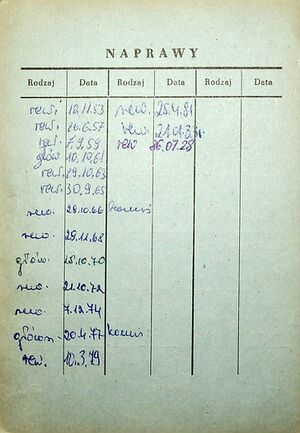 NAPRAWY
Rodzaj Data Rodzaj Data Rodzaj Data
rewi 10.11.53 rew. 25.4.81
rew. 26.6.57 rew.
rew. 7.9.59 rew 06.07.28
głów 10.10.61
rew. 29.10.63
rew. 30.9.65
rew. 28.10.66
rew. 28.11.68
głów. 15.10.70
rew. 21.10.72
rew. 7.12.74
główn 20.4.77
rew. 10.3.79